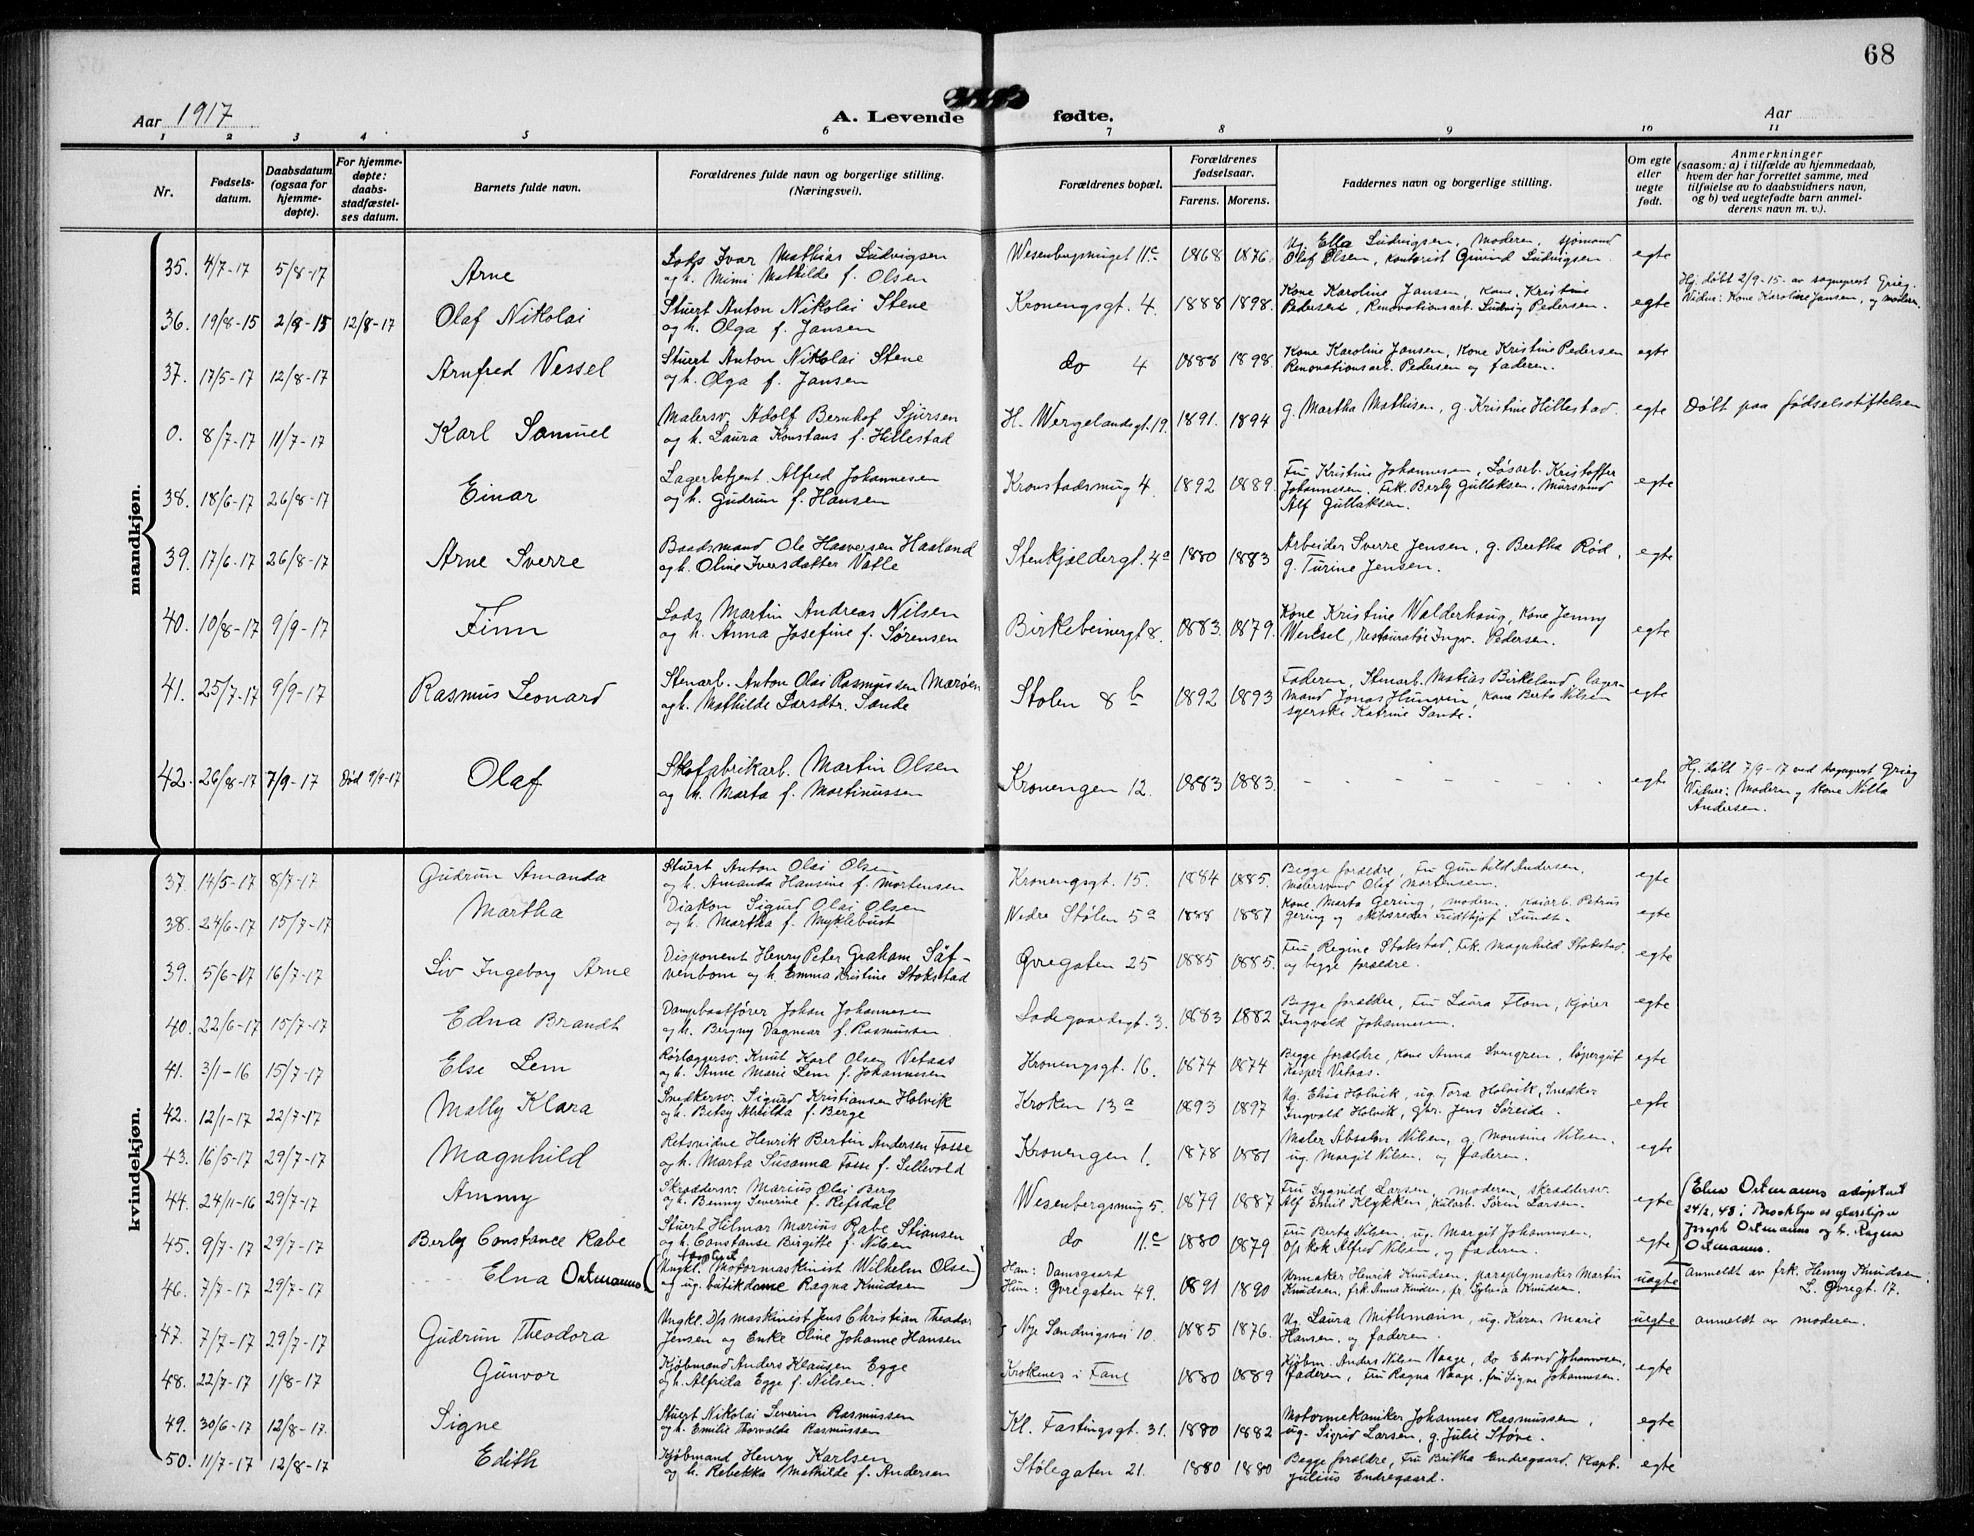 68
Aar 1917
A. Levende fødte.
Aar
1 2 3 4 5 6 7 8 9 10 11
Nr.
Fødselsdatum.
Daabsdatum (ogsaa for hjemmedøpte).
For hjemmedøpte: daabsstadfæstelses datum.
Barnets fulde navn.
Forældrenes fulde navn og borgerlige stilling. (Næringsvei).
Forældrenes bopæl.
Forældrenes fødselsaar.
Farens. Morens.
Faddernes navn og borgerlige stilling.
Om egte eller uegte født.
Anmerkninger
(saasom: a) i tilfælde av hjemmedaab, hvem der har forrettet samme, med tilføielse av to daabsvidners navn, og b) ved uegtefødte barn anmelderens navn m. v.).
mandkjøn.
35. 4/7-17 5/8-17 Arne
Lods Ivar Mathias Ludvigsen
og h. Mimi Mathilde f. Olsen
Wesenbergsmuget 11c 1868 1876.
Ug. Ella Ludvigsen, moderen, sjømand
Olaf Olsen, kontorist Øivind Ludvigsen. egte
36. 19/8-15 2/9-15 12/8-17 Olaf Nikolai
Stuert Anton Nikolai Stene
og h. Olga f. Jansen
Kronengsgt. 4. 1888 1898.
Kone Karoline Jansen, kone Kristine
Pedersen, Renovationsarb. Ludvig Pedersen. egte
Hj. døbt 2/9-15 av sogneprest Grieg.
Vidner: Kone Karoline Jansen, og moderen.
37. 17/5-17 12/8-17 Arnfred Vessel
Stuert Anton Nikolai Stene
og h. Olga f. Jansen
do 4 1888 1898.
Kone Karoline Jansen, Kone Kristine Pedersen
Renovationsarb. Pedersen og faderen. egte
0. 8/7-17 11/7-17 Karl Samuel
Malersv. Adolf Bernhof Sjursen
og h. Laura Konstans f. Hillestad
H. Wergelandsgt. 19. 1891. 1894
g. Martha Mathisen, g. Kristine Hillestad. egte
Døbt paa fødselsstiftelsen
38. 18/6-17 26/8-17 Einar
Lagerbetjent Alfred Johannesen
og h. Gudrun f. Hansen
Kronstadsmug 4. 1892 1889.
Fru Kristine Johannesen, Løsarb. Kristoffer
Johannesen. Frk. Berly Gullaksen. Mursvend
Alf Gullaksen. egte
39. 17/6-17 26/8-17 Arne Sverre
Baadsmand Ole Haaversen Haaland
og h. Oline Iversdatter Valle
Stenkjeldergt. 4a 1880 1883
Arbeider Sverre Jensen, g. Bertha Rød,
g. Turine Jensen. egte
40. 10/8-17 9/9-17 Finn
Lods Martin Andreas Nilsen
og h. Anna Josefine f. Sørensen
Birkebeinergt 8. 1883. 1879.
Kone Kristine Walderhaug, Kone Jenny
Wentsel, restauratør Ingv. Pedersen. egte
41. 25/7-17 9/9-17 Rasmus Leonard
Stenarb. Anton Olai Rasmussen Marøen
og h. Mathilde Larsdtr. Sande
Stølen 8 b 1892 1893
Faderen, Stenarb. Matias Birkeland, lager-
mand Jonas Hunvin, kone Berta Nilsen
syerske Katrine Sande. egte
42. 26/8-17 7/9-17 Død 9/9-17 Olaf
Skofabrikarb. Martin Olsen
og h. Marta f. Martinussen
Kronengen 12. 1883 1883.
- - - - - - egte
Hj. døbt 7/9-17 ved sogneprest Grieg
Vidner: Modern og Kone Nilla
Andersen.
kvindekjøn.
37. 14/5-17 8/7-17 Gudrun Amanda
Stuert Anton Olai Olsen
og h. Amanda Hansine f. Mortensen
Kronengsgt. 15. 1884 1885.
Begge forældre, Fru Gunhild Andersen,
Malersvend Olaf Mortensen. egte
38. 24/6-17 15/7-17 Martha
Diakon Sigurd Olai Olsen
og h. Martha f. Myklebust
Nedre Stølen 5a 1888 1887
Kone Marta Gering, moderen, kaiarb. Petrus
Gering og skibsreder Fridthjof Lundt. egte
39. 5/6-17 16/7-17 Liv Ingeborg Arne
Disponent Henry Peter Graham Säf-
venbom og h. Emma Kristine Stokstad
Øvregaten 25 1885 1885.
Fru Regine Stokstad, Frk. Magnhild Stokstad.
og begge forældre. egte
40. 22/6-17 15/7-17 Edna Brandt
Dampbaatfører Johan Johannesen
og h. Bergny Dagmar f. Rasmussen
Ladegaardsgt. 3. 1883 1882
Begge forældre, Fru Laura Flom, kjører
Ingvald Johannesen. egte
41. 3/1-16 15/7-17 Else Lem
Rørlæggersv. Knut Karl Olsen Vetaas
og h. Anne Marie Lem f. Johannesen
Kronengsgt. 16. 1874 1874
Begge forældre, kone Anna Svengren, løpergut
Kasper Vetaas. egte
42. 12/1-17 22/7-17 Mally Klara
Snedkersv. Sigurd Kristiansen Holvik
og h. Betsy Matilda f. Berge
Kroken 13a 1893 1897
Ug. Elise Holvik, ug. Tora Holvik, Snedker
Ingvald Holvik, gbr. Jens Søreide. egte
43. 16/5-17 29/7-17 Magnhild
Retsvidne Henrik Bertin Andersen Fosse
og h. Marta Susanna Fosse f. Sellevold
Kronengen 1. 1878 1881
Maler Absalon Nilsen, g. Monsine Nilsen,
ug. Margit Nilsen, og faderen. egte
44. 24/11-16 29/7-17 Ammy
Skræddersv. Marius Olai Berg
og h. Benny Severine f. Refsdal
Wesenbergsmug 5. 1879 1887
Fru Sygnild Larsen, moderen, skræddersv.
Alf Emil Klykken, kularb. Søren Larsen. egte
45. 9/7-17 29/7-17 Berly Constance Rabe
Stuert Hilmar Marius Rabe Stiansen
og h. Constanse Birgitte f. Nilsen
do 11c 1880 1879
Fru Berta Nilsen, ug. Margit Johannesen,
o/s kok Alfred Nilsen, og faderen. egte
46. 7/7-17 29/7-17 Elna Ortmanns
(Ungkl. Motormaskinist Wilhelm Olsen
og ug. butikdame Ragna Knudsen)
Han: Damsgaard
Hun: Øvregaten 49. 1891 1890
Urmaker Henrik Knudsen, paraplymaker Martin
Knudsen, frk. Anna Knudsen, fr. Sylvia Knudsen. uegte
(Elna Ortmanns adoptert
24/2, 43 i Brooklyn av glassliper
Joseph Ortmanns og h. Ragna
Ortmanns.
Anmeldt av frk. Henny Knudsen
L. Øvregt. 17.
47. 7/7-17 29/7-17 Gudrun Theodora
Ungkl. D/s maskinist Jens Christian Theodor
Jensen og Enke Oline Johanne Hansen
Nye Sandvigsvei 10. 1885 1876.
Ug. Laura Mithmann, ug. Karen Marie
Hansen, og faderen. uegte
anmeldt av moderen.
48. 22/7-17 1/8-17 Gunvor
Kjøbmand Anders Klausen Egge
og h. Alfrida Egge f. Nilsen.
Krokenes i Fane 1880 1889
Kjøbm. Anders Nilsen Vaage, do Edvard Johannesen,
faderen, Fru Ragna Vaage, fru Signe Johannesen. egte
49. 30/6-17 12/8-17. Signe
Stuert Nikolai Severin Rasmussen
og h. Emilie Thorvalda Rasmussen
Kl. Fastingsgt. 31. 1880 1882
Motormekaniker Johannes Rasmussen,
ug. Sigrid Larsen, g. Julie Støve. egte
50. 11/7-17 12/8-17 Edith
Kjøbmand Henry Karlsen
og h. Rebekka Mathilde f. Andersen
Stølegaten 21. 1880 1880
Begge forældre, Fru Britha Endregaard. Kapt.
Julius Endregaard. egte